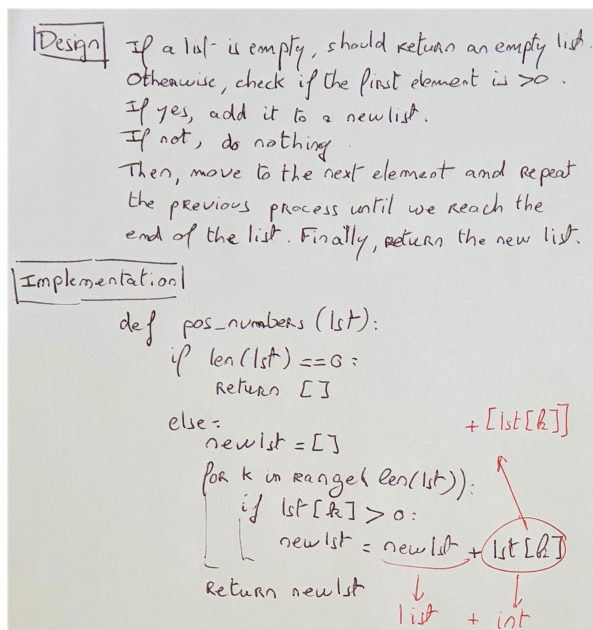 Design
If a list is empty, should return an empty list.
Otherwise, check if the first element is >0.
If yes, add it to a newlist.
If not, do nothing.
Then, move to the next element and repeat
the previous process until we reach the
end of the list. Finally, return the new list.
Implementation
def pos_numbers (lst):
if len(lst) ==0:
return []
else:
newlst = []
for k in range( len(lst)):
if lst[k] > 0:
newlst = newlst + lst[k]
+ [lst[k]]
return newlst
list + int